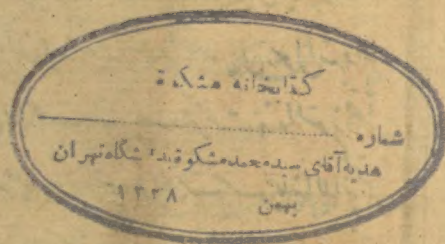 کتابخانه مشکوة
شماره
هدیه آقای سید محمد مشکوة بدانشگاه تهران
بهمن
۱۳۳۸